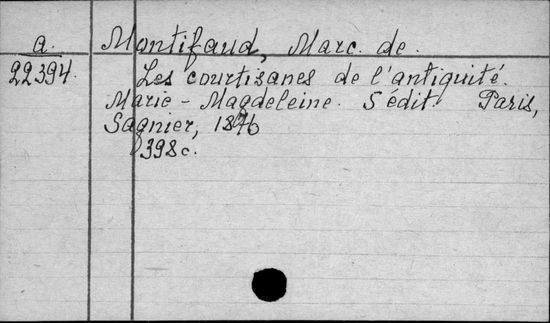 a.
22394.
Montifaud, Marc. de.
Les courtisanes de l'antiquité.
Marie - Magdeleine. 5 édit Paris,
Sagnier, 1876
398c.